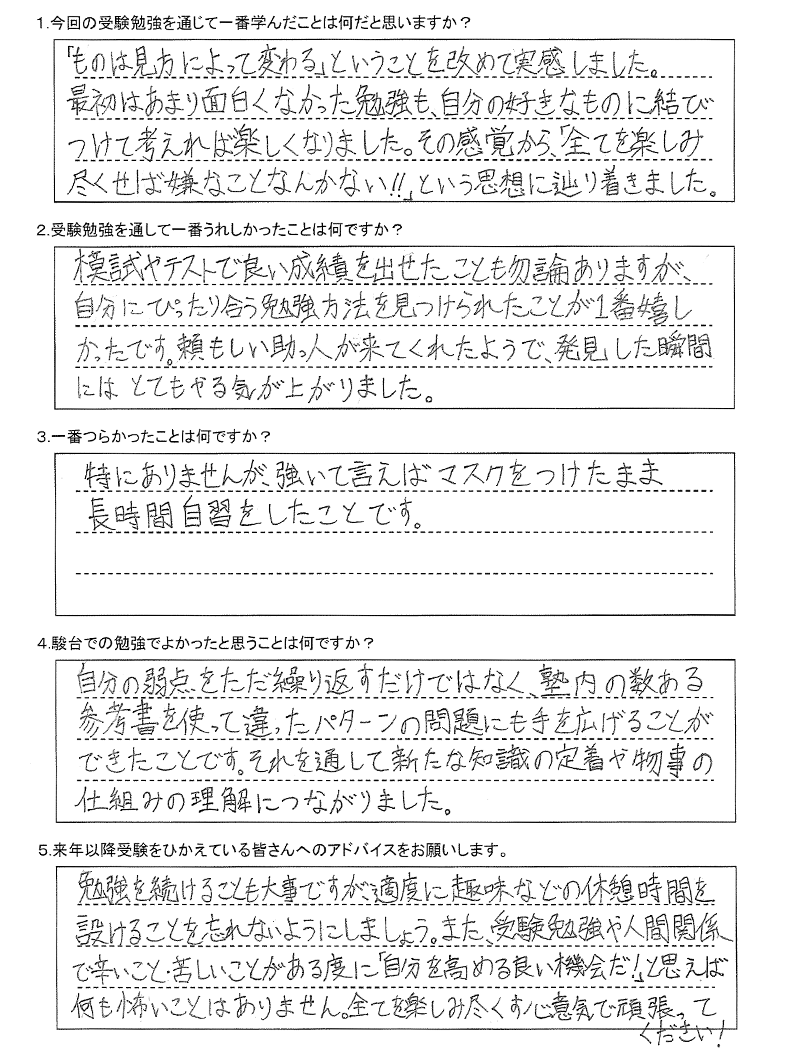 1.今回の受験勉強を通じて一番学んだことは何だと思いますか？
「ものは見方によって変わる」ということを改めて実感しました。
最初はあまり面白くなかった勉強も、自分の好きなものに結び
つけて考えれば楽しくなりました。その感覚から、「全てを楽しみ
尽くせば嫌なことなんかない!!」という思想に辿り着きました。
2.受験勉強を通して一番うれしかったことは何ですか？
模試やテストで良い成績を出せたことも勿論ありますが、
自分にぴったり合う勉強方法を見つけられたことが1番嬉し
かったです。頼もしい助っ人が来てくれたようで、発見した瞬間
にはとてもやる気が上がりました。
3.一番つらかったことは何ですか？
特にありませんが、強いて言えばマスクをつけたまま
長時間自習をしたことです。
4.駿台での勉強でよかったと思うことは何ですか？
自分の弱点をただ繰り返すだけではなく、塾内の数ある
参考書を使って違ったパターンの問題にも手を広げることが
できたことです。それを通して新たな知識の定着や物事の
仕組みの理解につながりました。
5.来年以降受験をひかえている皆さんへのアドバイスをお願いします。
勉強を続けることも大事ですが、適度に趣味などの休憩時間を
設けることを忘れないようにしましょう。また、受験勉強や人間関係
で辛いこと・苦しいことがある度に「自分を高める良い機会だ!」と思えば
何も怖いことはありません。全てを楽しみ尽くす心意気で頑張って
ください!